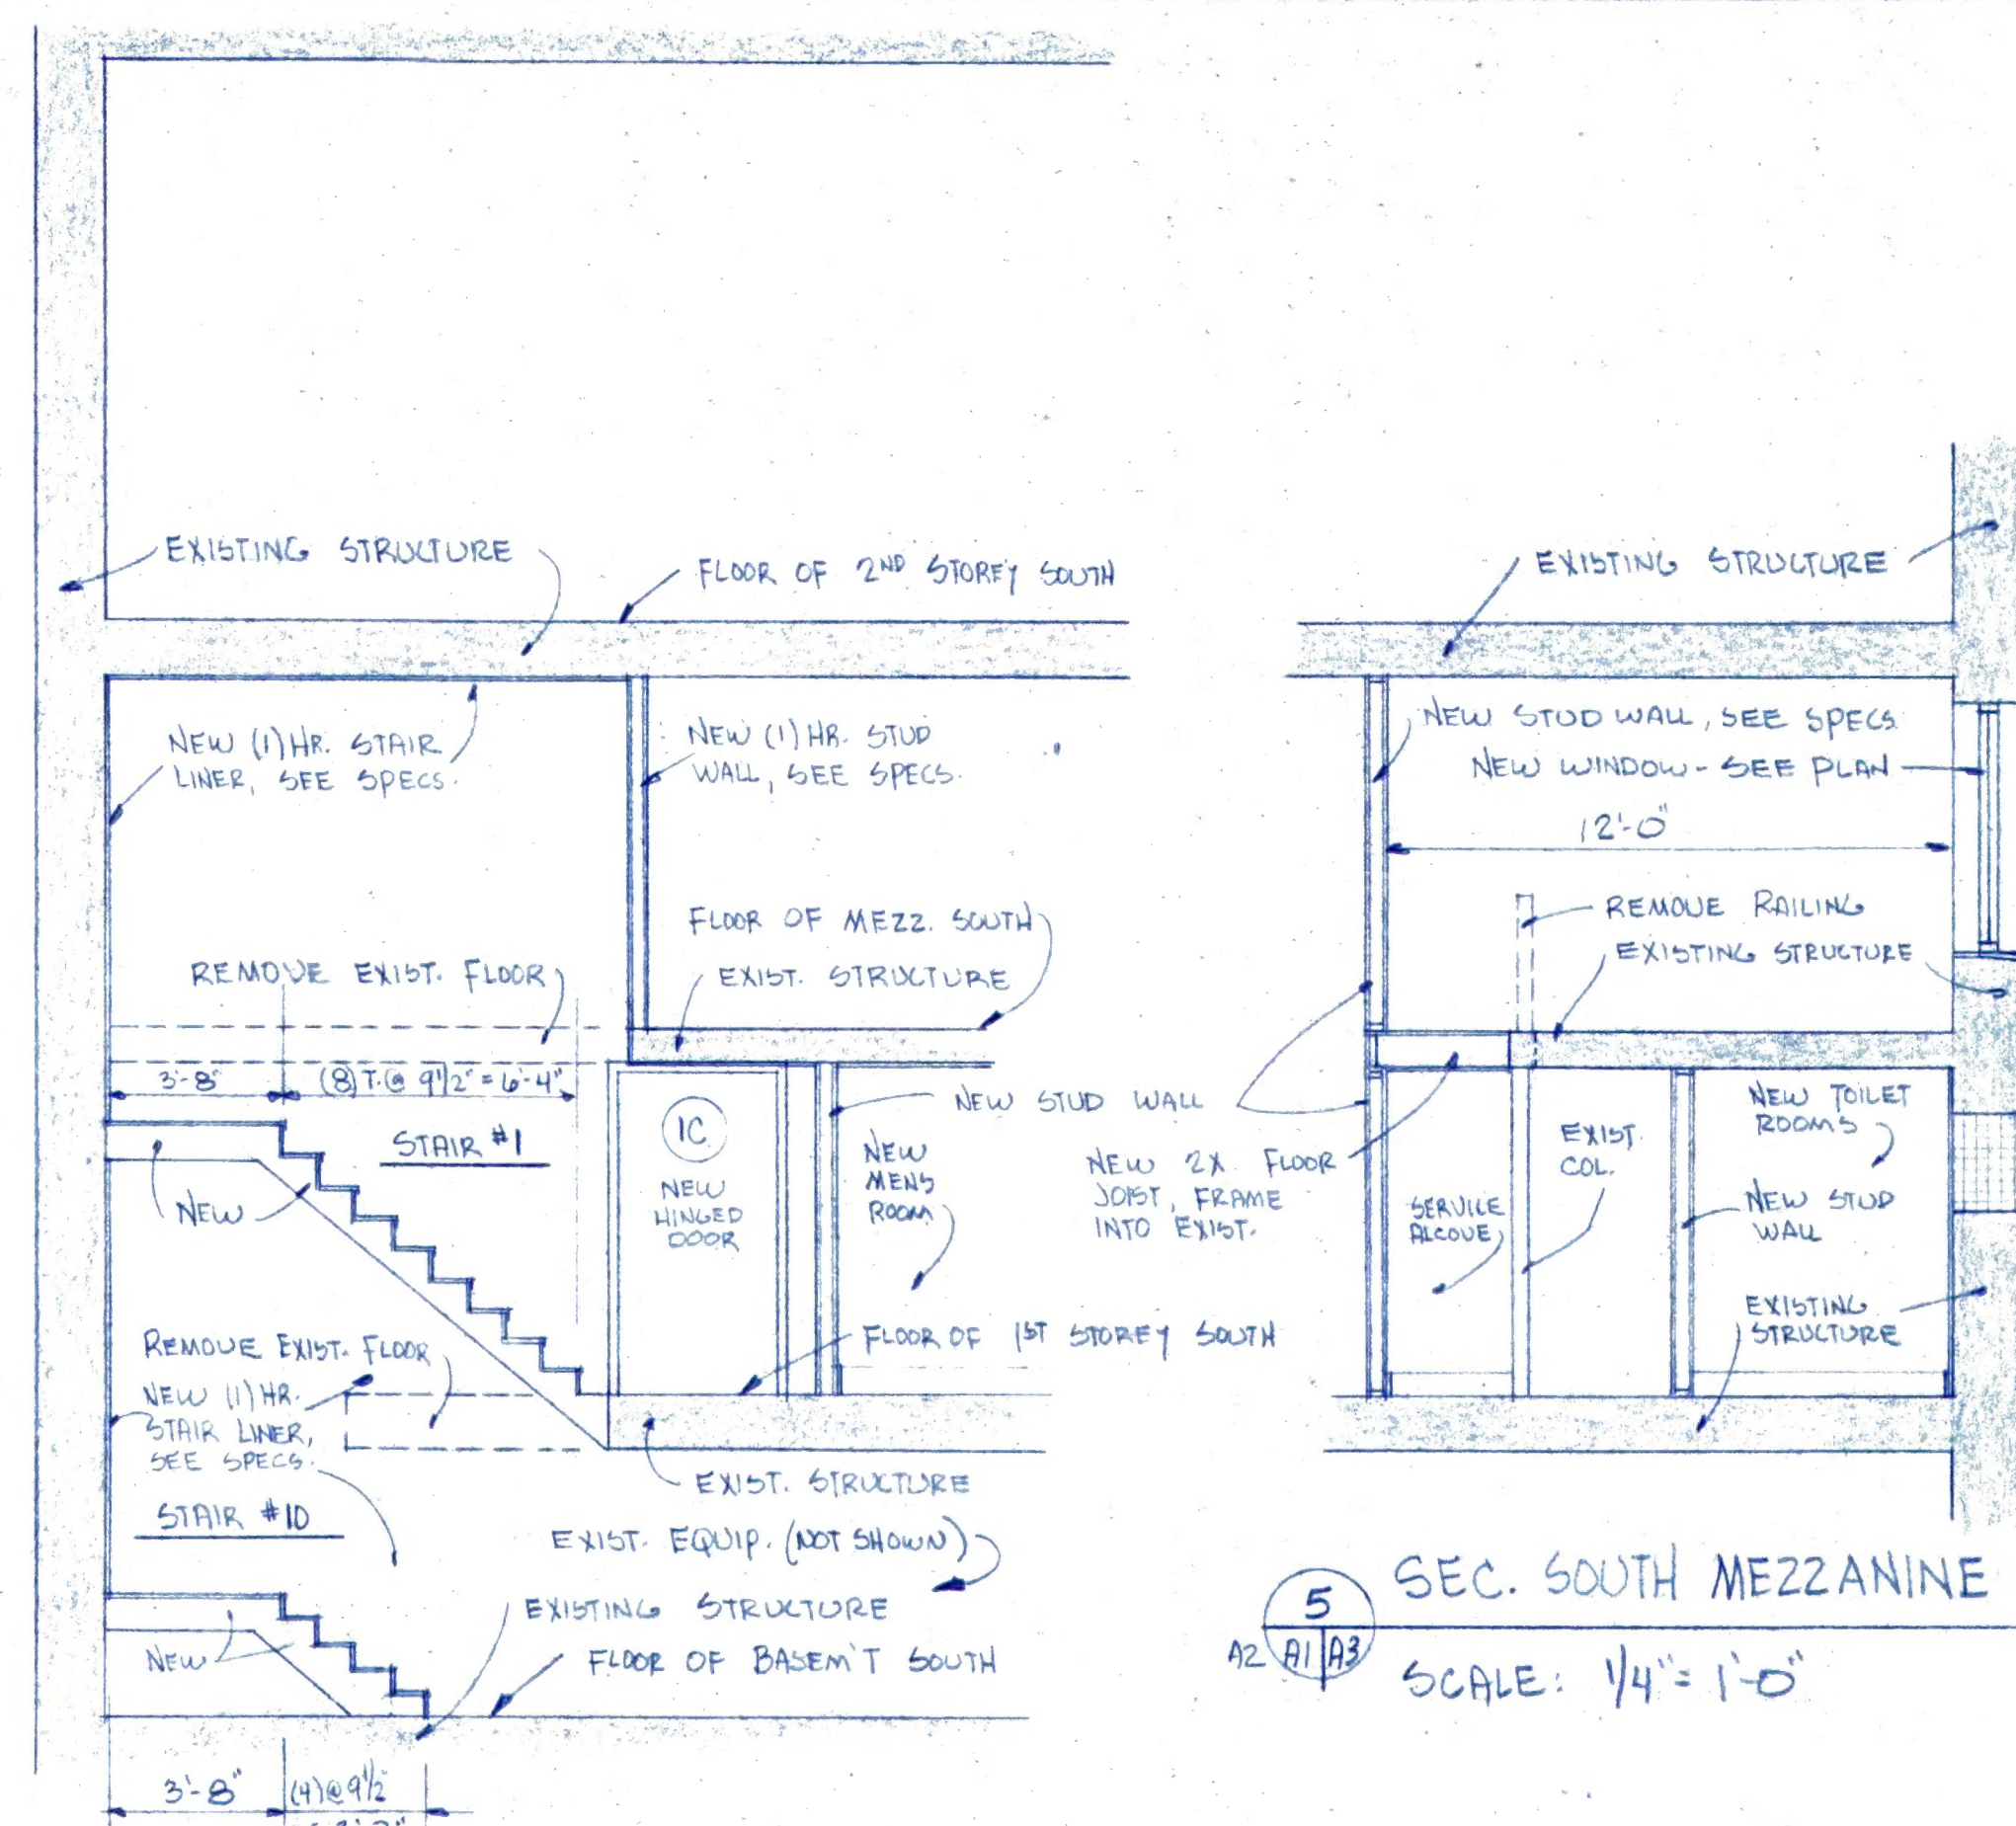 EXISTING STRUCTURE
FLOOR OF 2ND STOREY SOUTH
NEW (1) HR. STAIR
LINER, SEE SPECS.
NEW (1) HR. STUD
WALL, SEE SPECS.
FLOOR OF MEZZ. SOUTH
EXIST. STRUCTURE
REMOVE EXIST. FLOOR
3'-8"
(8) T. @ 9 1/2" = 6'-4"
STAIR #1
NEW
1C
NEW
HINGED
DOOR
NEW
MENS
ROOM
NEW STUD WALL
FLOOR OF 1ST STOREY SOUTH
REMOVE EXIST. FLOOR
NEW (1) HR.
STAIR LINER,
SEE SPECS.
EXIST. STRUCTURE
STAIR #10
EXIST. EQUIP. (NOT SHOWN)
EXISTING STRUCTURE
FLOOR OF BASEM'T SOUTH
NEW
3'-8"
(4) @ 9 1/2
EXISTING STRUCTURE
NEW STUD WALL, SEE SPECS.
NEW WINDOW - SEE PLAN
12'-0"
REMOVE RAILING
EXISTING STRUCTURE
NEW 2X FLOOR
JOIST, FRAME
INTO EXIST.
SERVICE
ALCOVE
EXIST.
COL.
NEW TOILET
ROOMS
NEW STUD
WALL
EXISTING
STRUCTURE
5
A2 A1 A3
SEC. SOUTH MEZZANINE
SCALE: 1/4" = 1'-0"